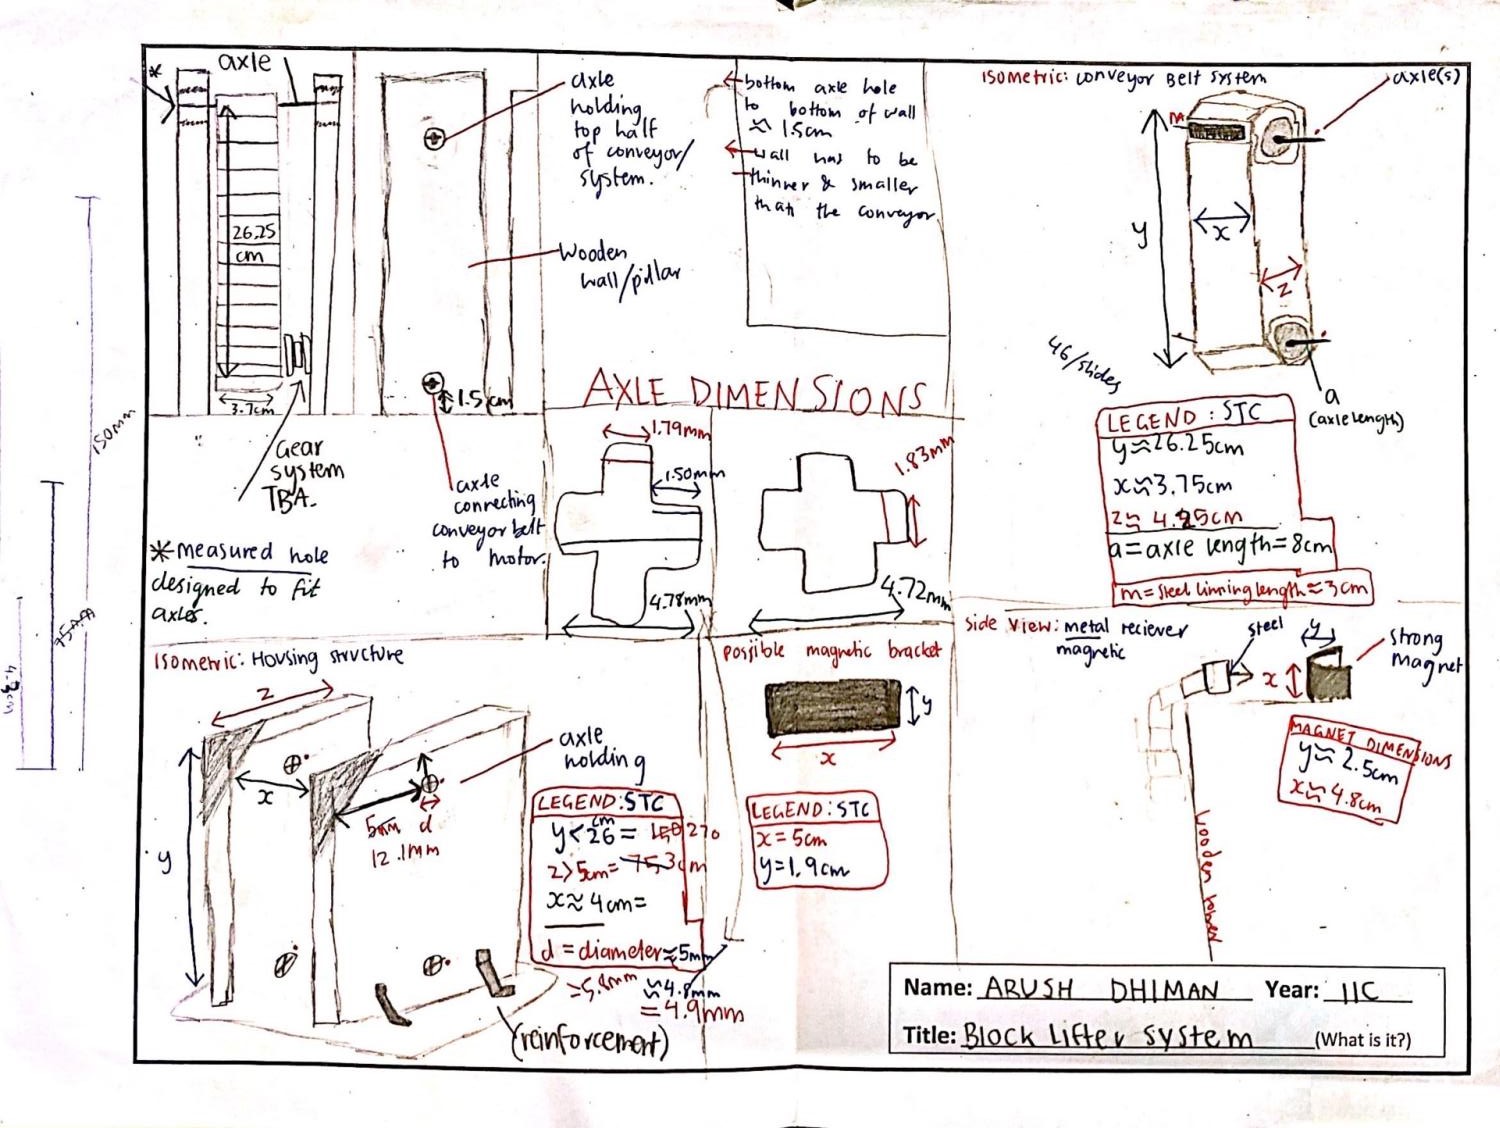 *
axle
26.25
cm
3.7cm
Gear
system
TBA.
*measured hole
designed to fit
axles.
axle
holding
top half
of conveyor/
system.
Wooden
wall/pillar
1.5cm
axle
connecting
conveyor belt
to motor.
bottom axle hole
to bottom of wall
≈ 1.5cm
wall has to be
thinner & smaller
than the conveyor.
AXLE DIMENSIONS
1.79mm
1.50mm
4.78mm
1.83mm
4.72mm
Isometric: conveyor Belt system
axle(s)
M
y
x
z
46/slides
a
(axle length)
LEGEND: STC
y≈26.25cm
x≈3.75cm
z≈ 4.25cm
a=axle length=8cm
m=steel linning length≈3cm
150mm
75mm
4.8cm
Isometric: Housing structure
z
x
y
5mm
12.1mm
d
axle
holding
LEGEND:STC
y<26cm = 270
z>5cm= 75,3cm
x≈4cm=
d=diameter≈5mm
≈4.8mm
=4.9mm
(reinforcement)
possible magnetic bracket
y
x
LEGEND: STC
x=5cm
y=1.9cm
side view: metal reciever
magnetic
steel
y
x
strong
magnet
MAGNET DIMENSIONS
y≈2.5cm
x≈4.8cm
wooden tower
Name: ARUSH DHIMAN Year: 11C
Title: Block Lifter system (What is it?)